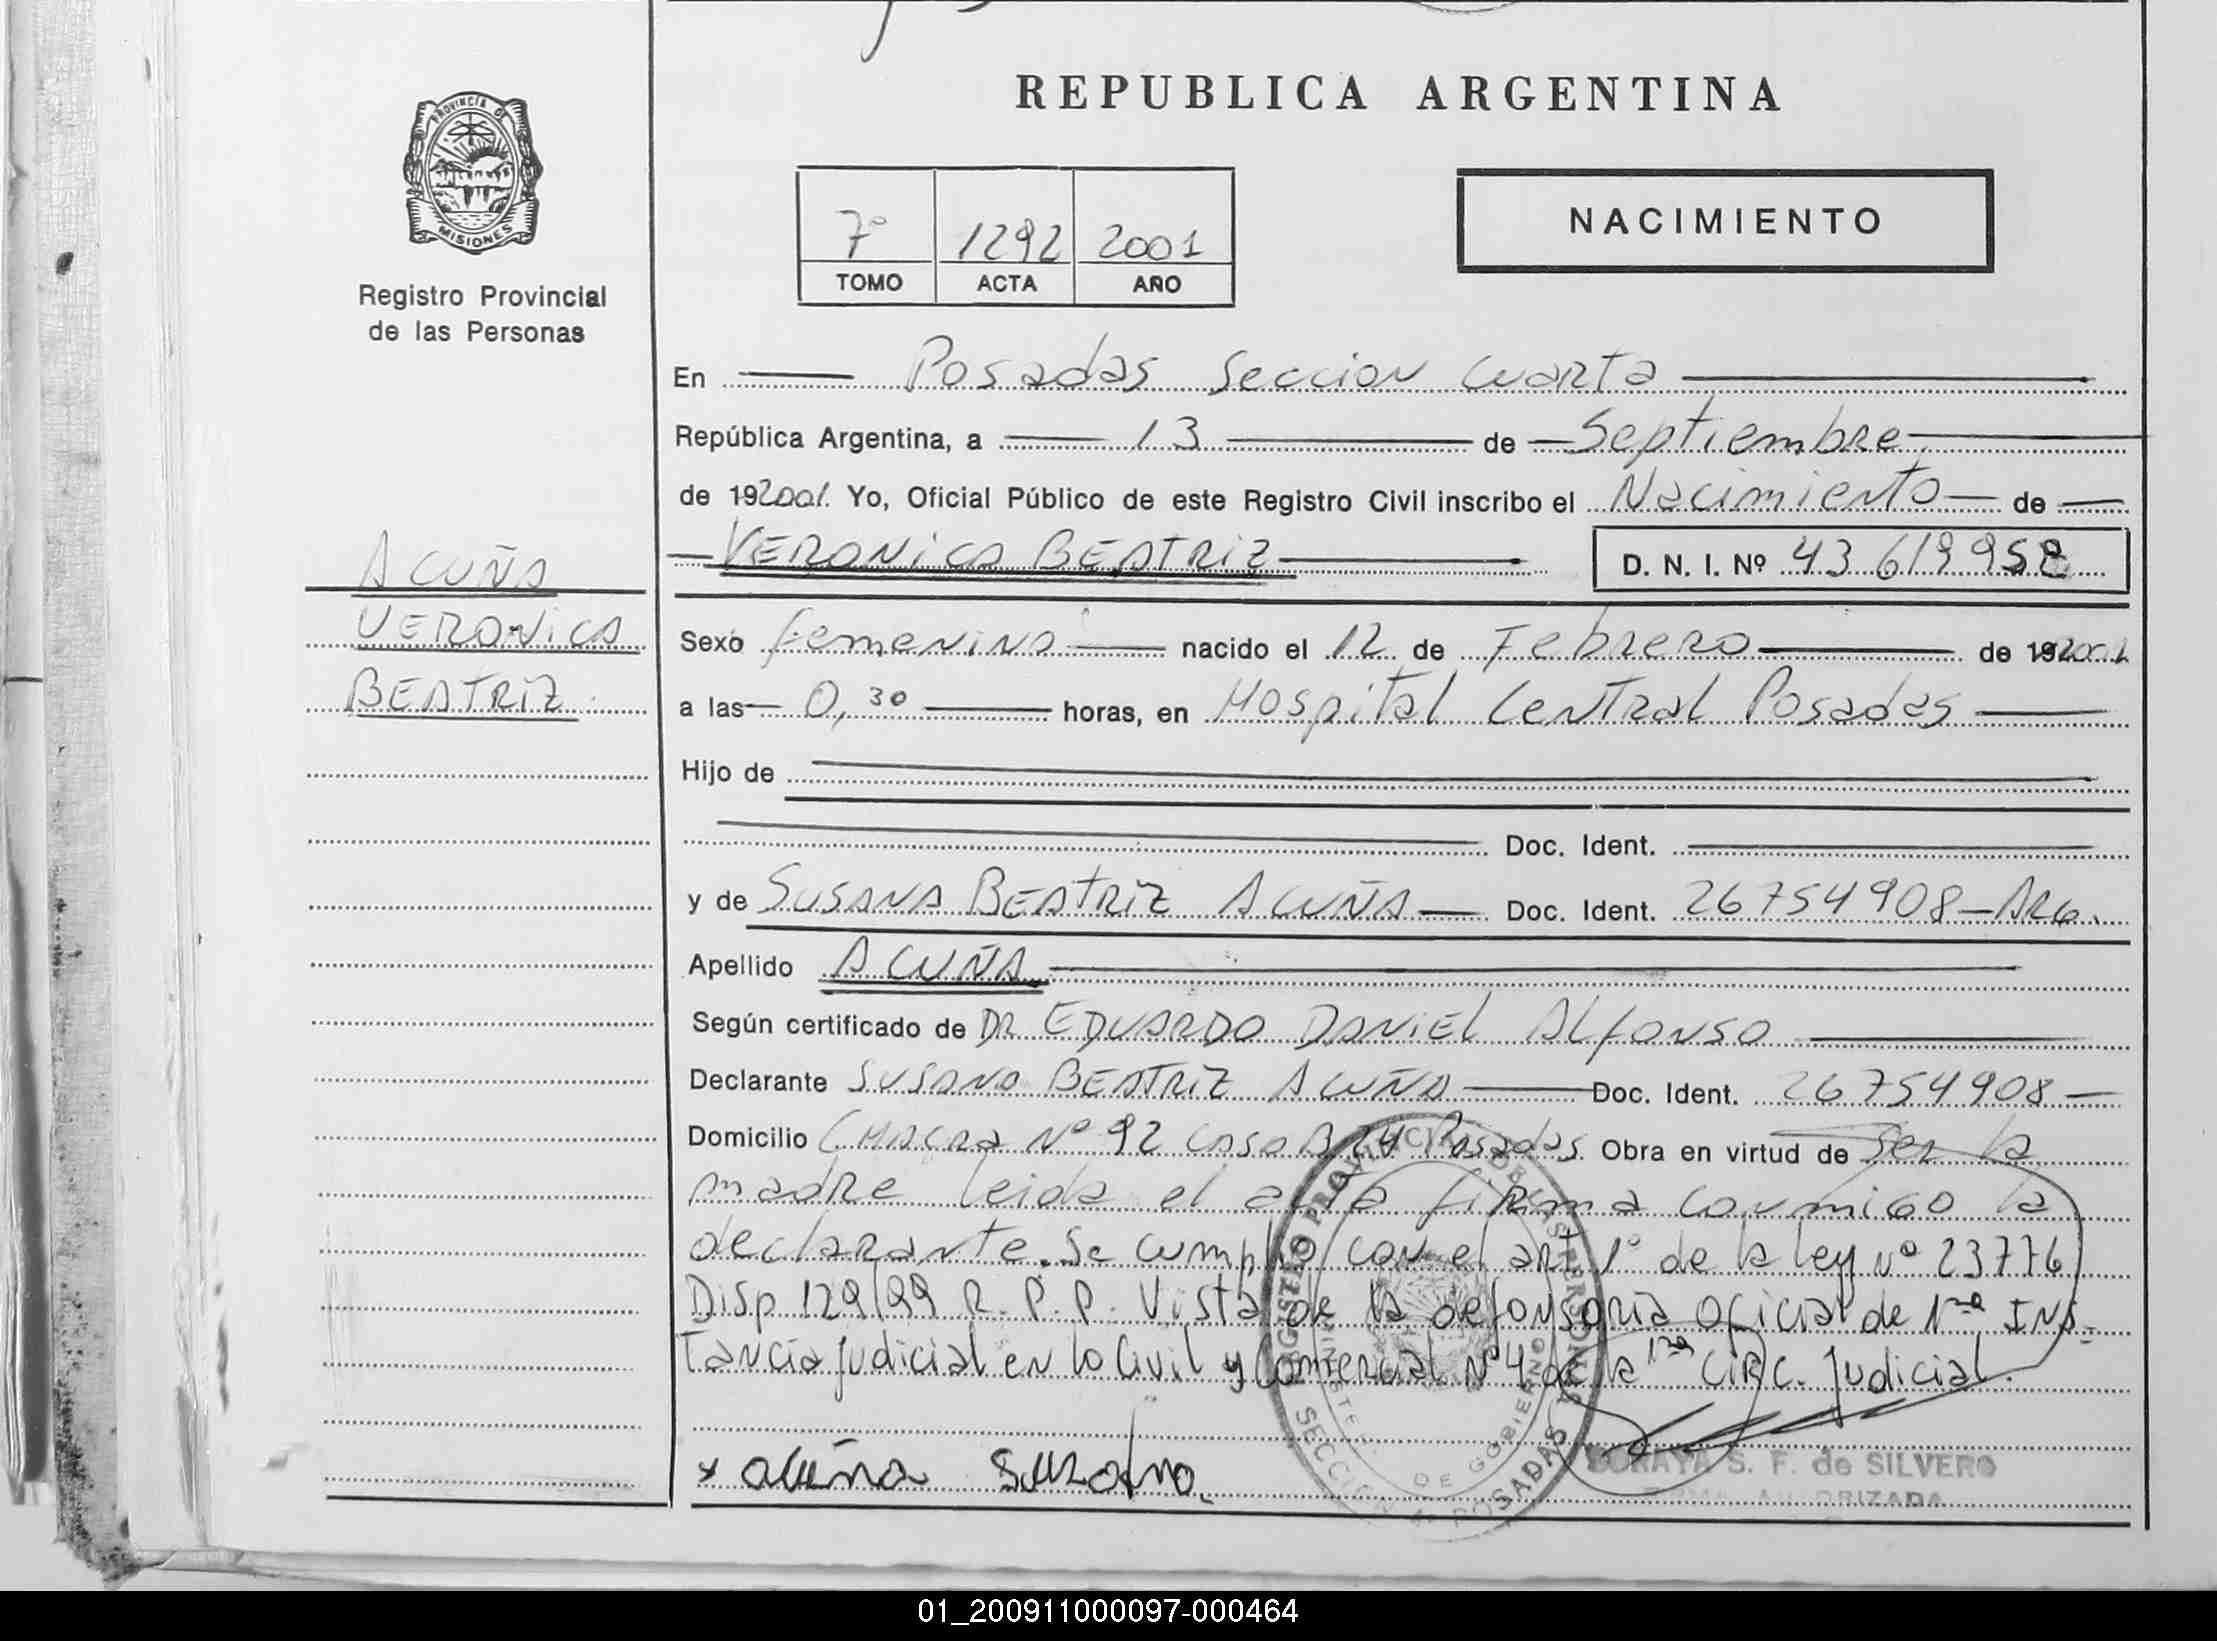 REPUBLICA ARGENTINA
PROVINCIA DE
MISIONES
Registro Provincial
de las Personas
7º 1292 2001
TOMO ACTA AÑO
NACIMIENTO
En Posadas Seccion Cuarta
República Argentina, a 13 de Septiembre
de 192001. Yo, Oficial Público de este Registro Civil inscribo el Nacimiento de
VERONICA BEATRIZ D. N. I. Nº 43 619 958
ACUÑA
VERONICA
BEATRIZ.
Sexo femenino nacido el 12 de Febrero de 192001
a las 0,30 horas, en Hospital Central Posadas
Hijo de
Doc. Ident.
y de SUSANA BEATRIZ ACUÑA Doc. Ident. 26754908-ARG.
Apellido ACUÑA
Según certificado de DR EDUARDO DANIEL ALFONSO
Declarante SUSANA BEATRIZ ACUÑA Doc. Ident. 26754908
Domicilio CHACRA Nº 92 CASA B 24 Posadas. Obra en virtud de ser la
madre leida el acta firma conmigo la
declarante. Se cumplio con el art 1º de la ley nº 23776
Disp 129/99 R. P. P. Vista de la defonsoria oficial de 1ra INS-
Tancia judicial en lo Civil y Comercial Nº4 de la 1ra CIRC. Judicial.
x acuña suzana.
REGISTRO PROVINCIAL DE LAS PERSONAS
DE GOBIERNO
SECCION POSADAS
SORAYA S. F. de SILVERO
FIRMA AUTORIZADA
01_200911000097-000464